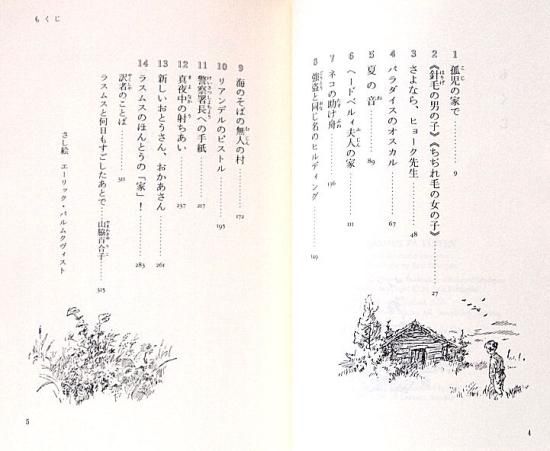 もくじ
1 孤児の家で 9
2 《針毛の男の子》《ちぢれ毛の女の子》 27
3 さよなら、ヒョーク先生 48
4 パラダイスのオスカル 67
5 夏の音 89
6 ヘードベルィ夫人の家 111
7 ネコの助け舟 136
8 強盗と同じ名のヒルディング 149
4
9 海のそばの無人の村 172
10 リアンデルのピストル 195
11 警察署長への手紙 217
12 真夜中の射ちあい 237
13 新しいおとうさん、おかあさん 261
14 ラスムスのほんとうの「家」! 283
訳者のことば 311
ラスムスと何日もすごしたあとで 山脇百合子 315
さし絵 エーリック・パルムクヴィスト
5